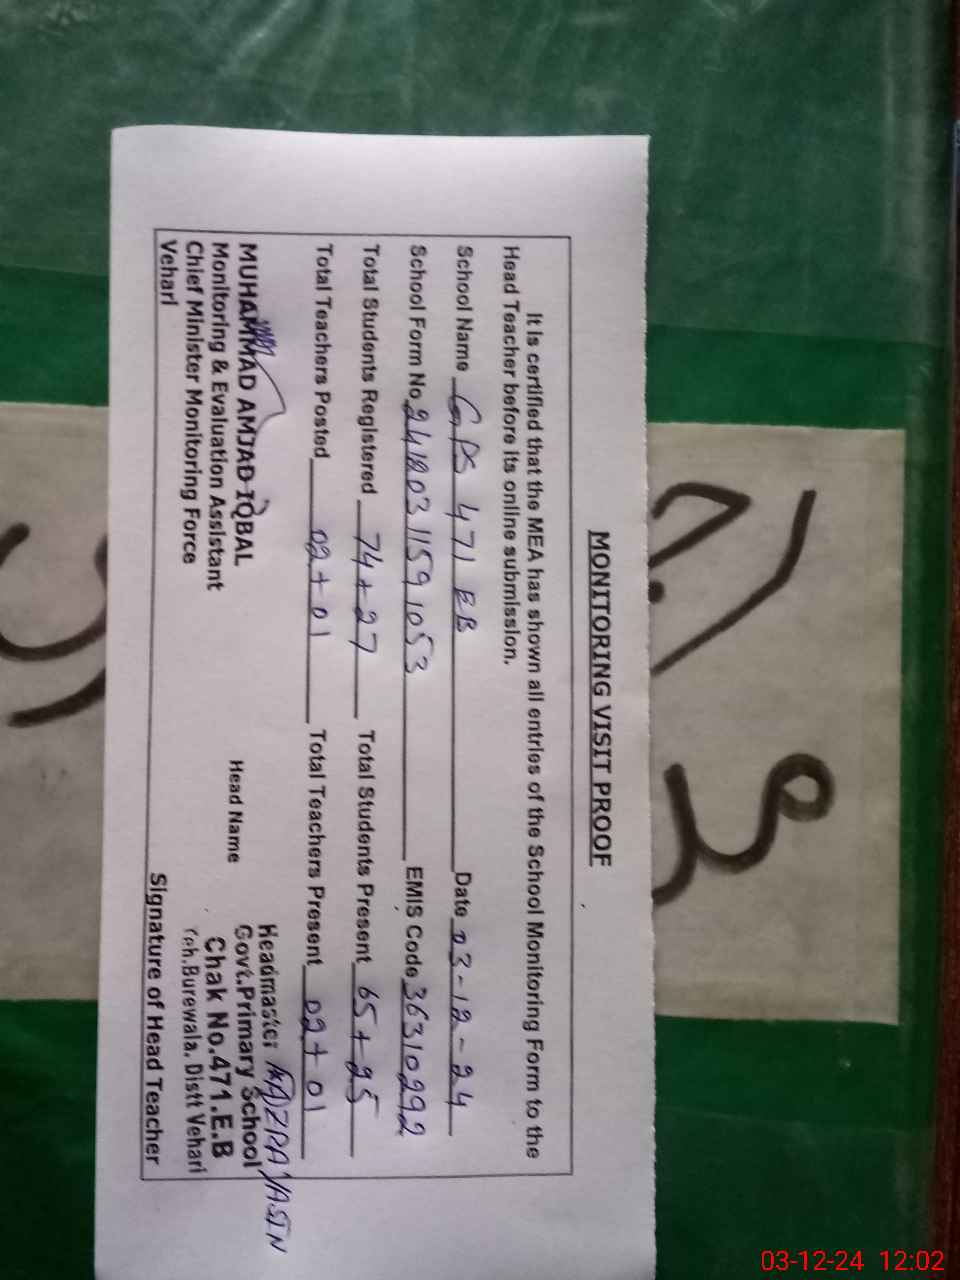 MONITORING VISIT PROOF
It is certified that the MEA has shown all entries of the School Monitoring Form to the
Head Teacher before its online submission.
School Name GPS 471 EB Date 03-12-24
School Form No 24180311591053 EMIS Code 36310292
Total Students Registered 74+27 Total Students Present 65+25
Total Teachers Posted 02+01 Total Teachers Present 02+01
MUHAMMAD AMJAD IQBAL
Monitoring & Evaluation Assistant
Chief Minister Monitoring Force
Vehari
Head Name
Headmaster YASIN
Govt.Primary School
Chak No.471.E.B
Teh.Burewala. Distt Vehari
Signature of Head Teacher
03-12-24 12:02